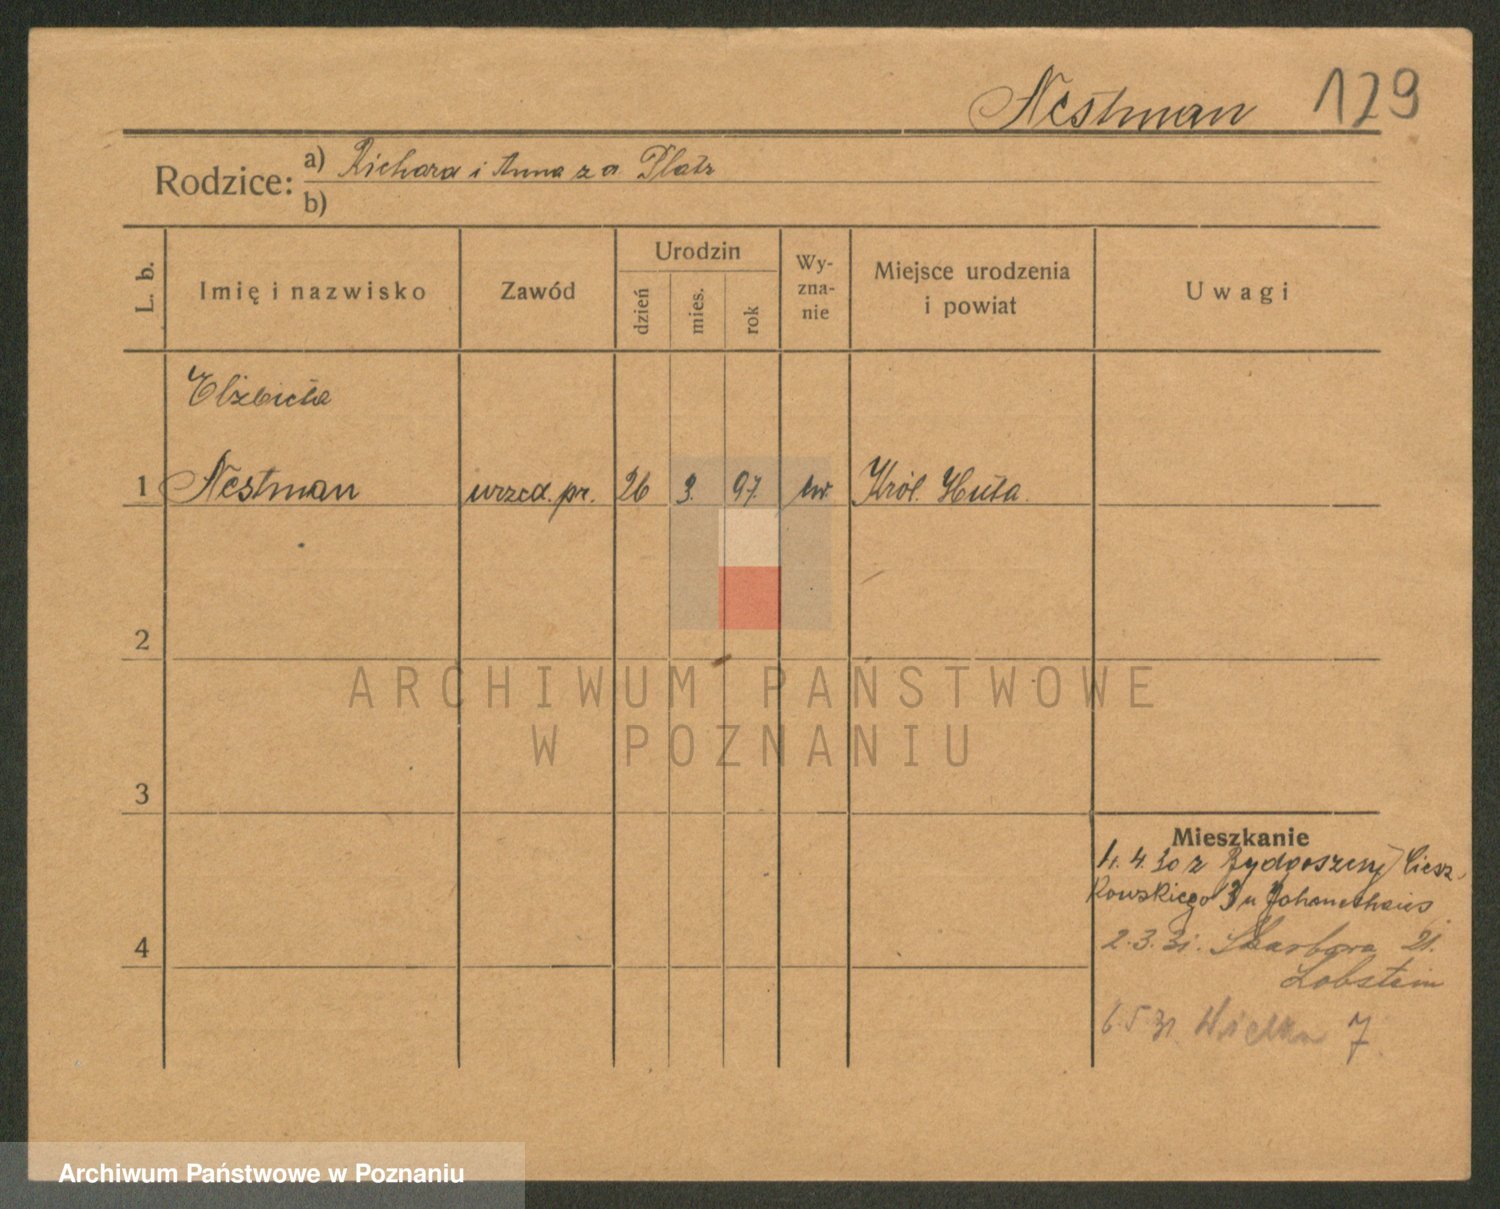 Nestman 129
Rodzice: a) Richard i Anna z d. Platz
b)
L. b. Imię i nazwisko Zawód Urodzin dzień mies. rok Wy-zna-nie Miejsce urodzenia i powiat Uwagi
Elżbieta
1 Nestman urzęd. pr. 26 3. 97. ew. Król. Huta.
2
ARCHIWUM PAŃSTWOWE
W POZNANIU
3
Mieszkanie
4. 30 z Bydgoszczy Ciesz-
kowskiego 3 u
4
2.3.31. Skarbowa 21.
Lobstein
6.5.31 Wielka 7
Archiwum Państwowe w Poznaniu